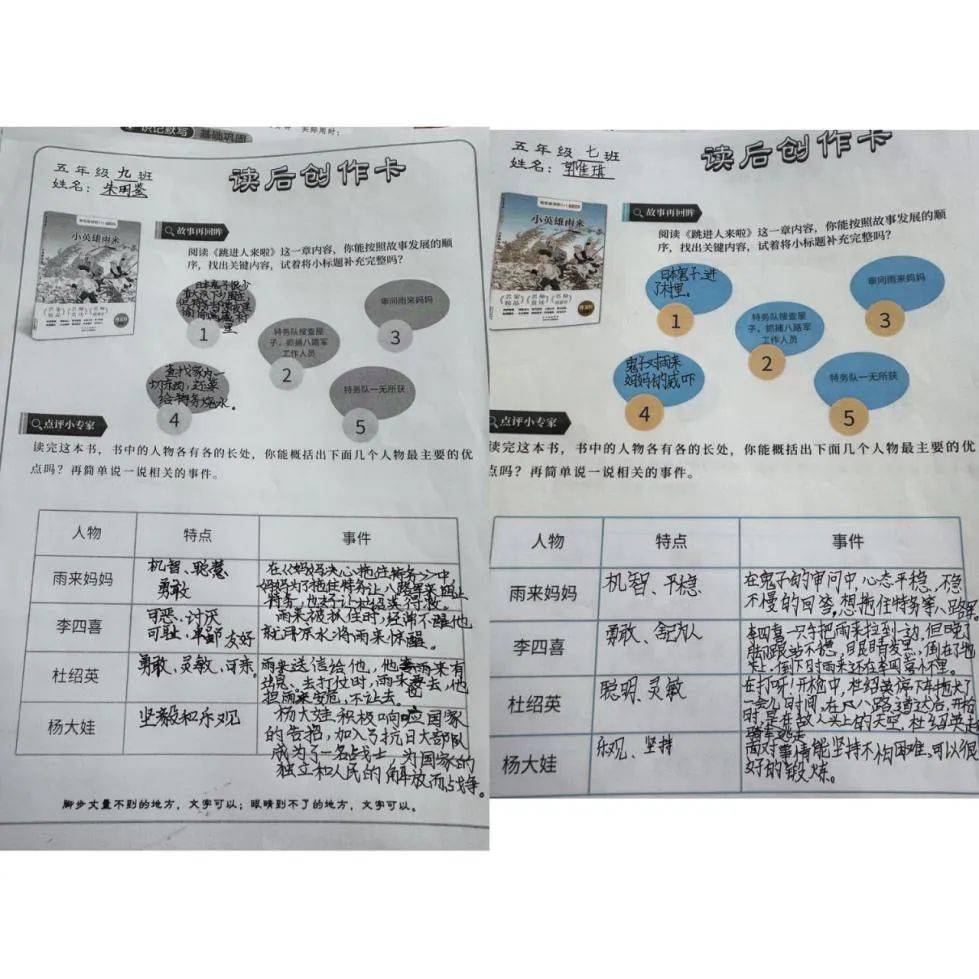 识记默写 基础巩固
实际用时：
五年级 九 班
姓名：
读后创作卡
小英雄雨来
故事再回眸
阅读《跳进人来啦》这一章内容，你能按照故事发展的顺
序，找出关键内容，试着将小标题补充完整吗？
1
特务队搜查屋
子，抓捕八路军
工作人员
2
审问雨来妈妈
3
查找家内一
切东西，还要
给特务烧水。
4
特务队一无所获
5
点评小专家
读完这本书，书中的人物各有各的长处，你能概括出下面几个人物最主要的优
点吗？再简单说一说相关的事件。
人物
特点
事件
雨来妈妈
机智、聪慧
勇敢
在《妈妈决心拖住特务》中
妈妈为了拖住特务让八路军来
李四喜
可恶、讨厌
可耻、友好
雨来被抓住时，经常不醒他
就用凉水将雨来惊醒。
杜绍英
勇敢、灵敏、
雨来送信给他，他雨来有
危险，去打仗时，雨来要去，他
担雨来安危，不让去。
杨大娃
坚毅和乐观
杨大娃积极响应国家
的告招，加入了抗日大部队
成为了一名战士，为国家的
独立和人民的解放而战争。
脚步丈量不到的地方，文字可以；眼睛到不了的地方，文字可以。
五年级 七 班
姓名：
读后创作卡
小英雄雨来
故事再回眸
阅读《跳进人来啦》这一章内容，你能按照故事发展的顺
序，找出关键内容，试着将小标题补充完整吗？
日本鬼子进
了村里。
1
特务队搜查屋
子，抓捕八路军
工作人员
2
审问雨来妈妈
3
鬼子对雨来
妈妈的威吓
4
特务队一无所获
5
点评小专家
读完这本书，书中的人物各有各的长处，你能概括出下面几个人物最主要的优
点吗？再简单说一说相关的事件。
人物
特点
事件
雨来妈妈
机智、平稳
在鬼子的审问中，心态平稳，不急
不慢的回答，想拖住特务等八路军
李四喜
勇敢、舍己为人
李四喜一只手把雨来拉到一边，但
脚跟站不稳，眼睛发黑，倒在了地
上，倒下时雨来还在李四喜怀里。
杜绍英
聪明、灵敏
在打呀！开枪中，杜绍英停下来拖大了
一会儿时间，在八路通过后，开枪
时，是在敌人头上的天空，杜绍英
杨大娃
乐观、坚持
面对事情能坚持不怕困难，可以很
好的锻炼。